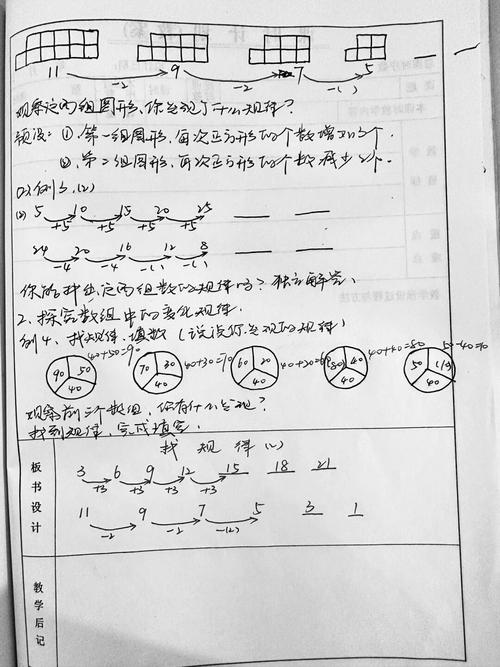 11 9 7 5
-2 -2 -( )
观察这两组图形,你发现了什么规律?
预设:①、第一组图形,每次正方形的个数增加3个.
②、第二组图形,每次正方形的个数减少2个.
(2)例3.(2)
(2) 5 10 15 20 25
+5 +5 +5 +5
24 20 16 12 8
-4 -4 -( ) -( )
你能找出这两组数的规律吗?独立解答.
2、探究数组中的变化规律.
例4、找规律,填数(说说你发现的规律)
90 50 40 40+50=90
70 30 40 40+30=70
60 20 40
80 40 40+40=80
50 (10) 40 50-40=10
观察前三个数组,你有什么发现?
找到规律,完成填空.
板书设计
找规律(一)
3 6 9 12 15 18 21
+3 +3 +3 +3
11 9 7 5 3 1
-2 -2 -(2)
教学后记